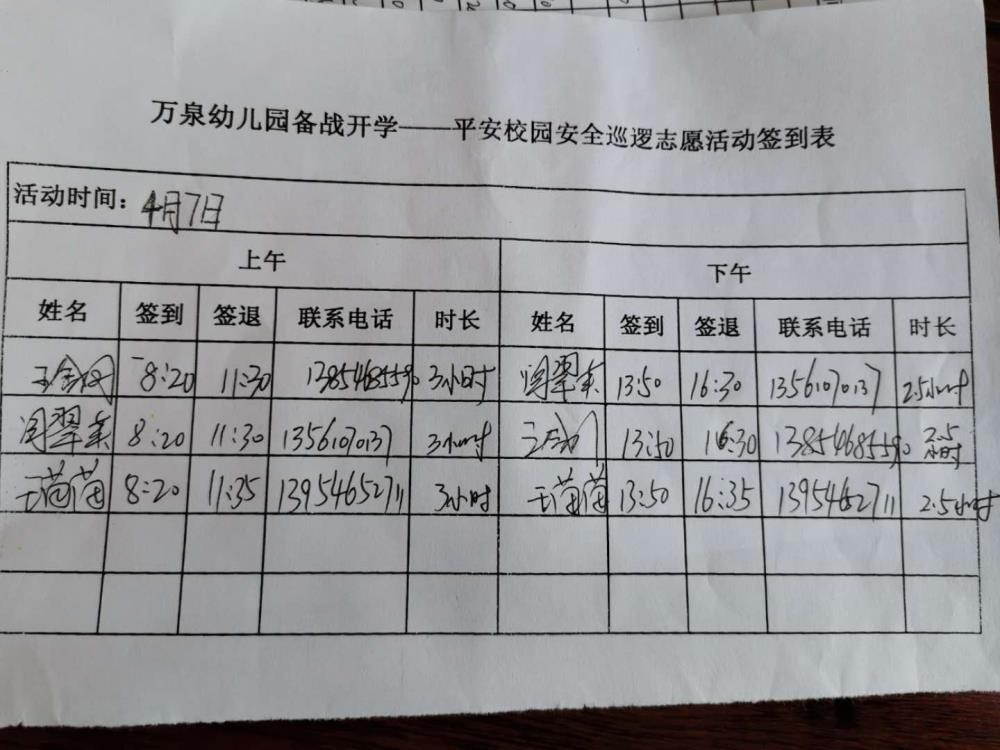 万泉幼儿园备战开学——平安校园安全巡逻志愿活动签到表
活动时间：4月7日
上午 下午
姓名 签到 签退 联系电话 时长 姓名 签到 签退 联系电话 时长
8:20 11:30 13854685590 3小时 翠 13:50 16:30 13561070137 2.5小时
翠 8:20 11:30 13561070137 3小时 王 13:50 16:30 13854685590 2.5小时
王菡菡 8:20 11:35 13954652711 3小时 王菡菡 13:50 16:35 13954652711 2.5小时